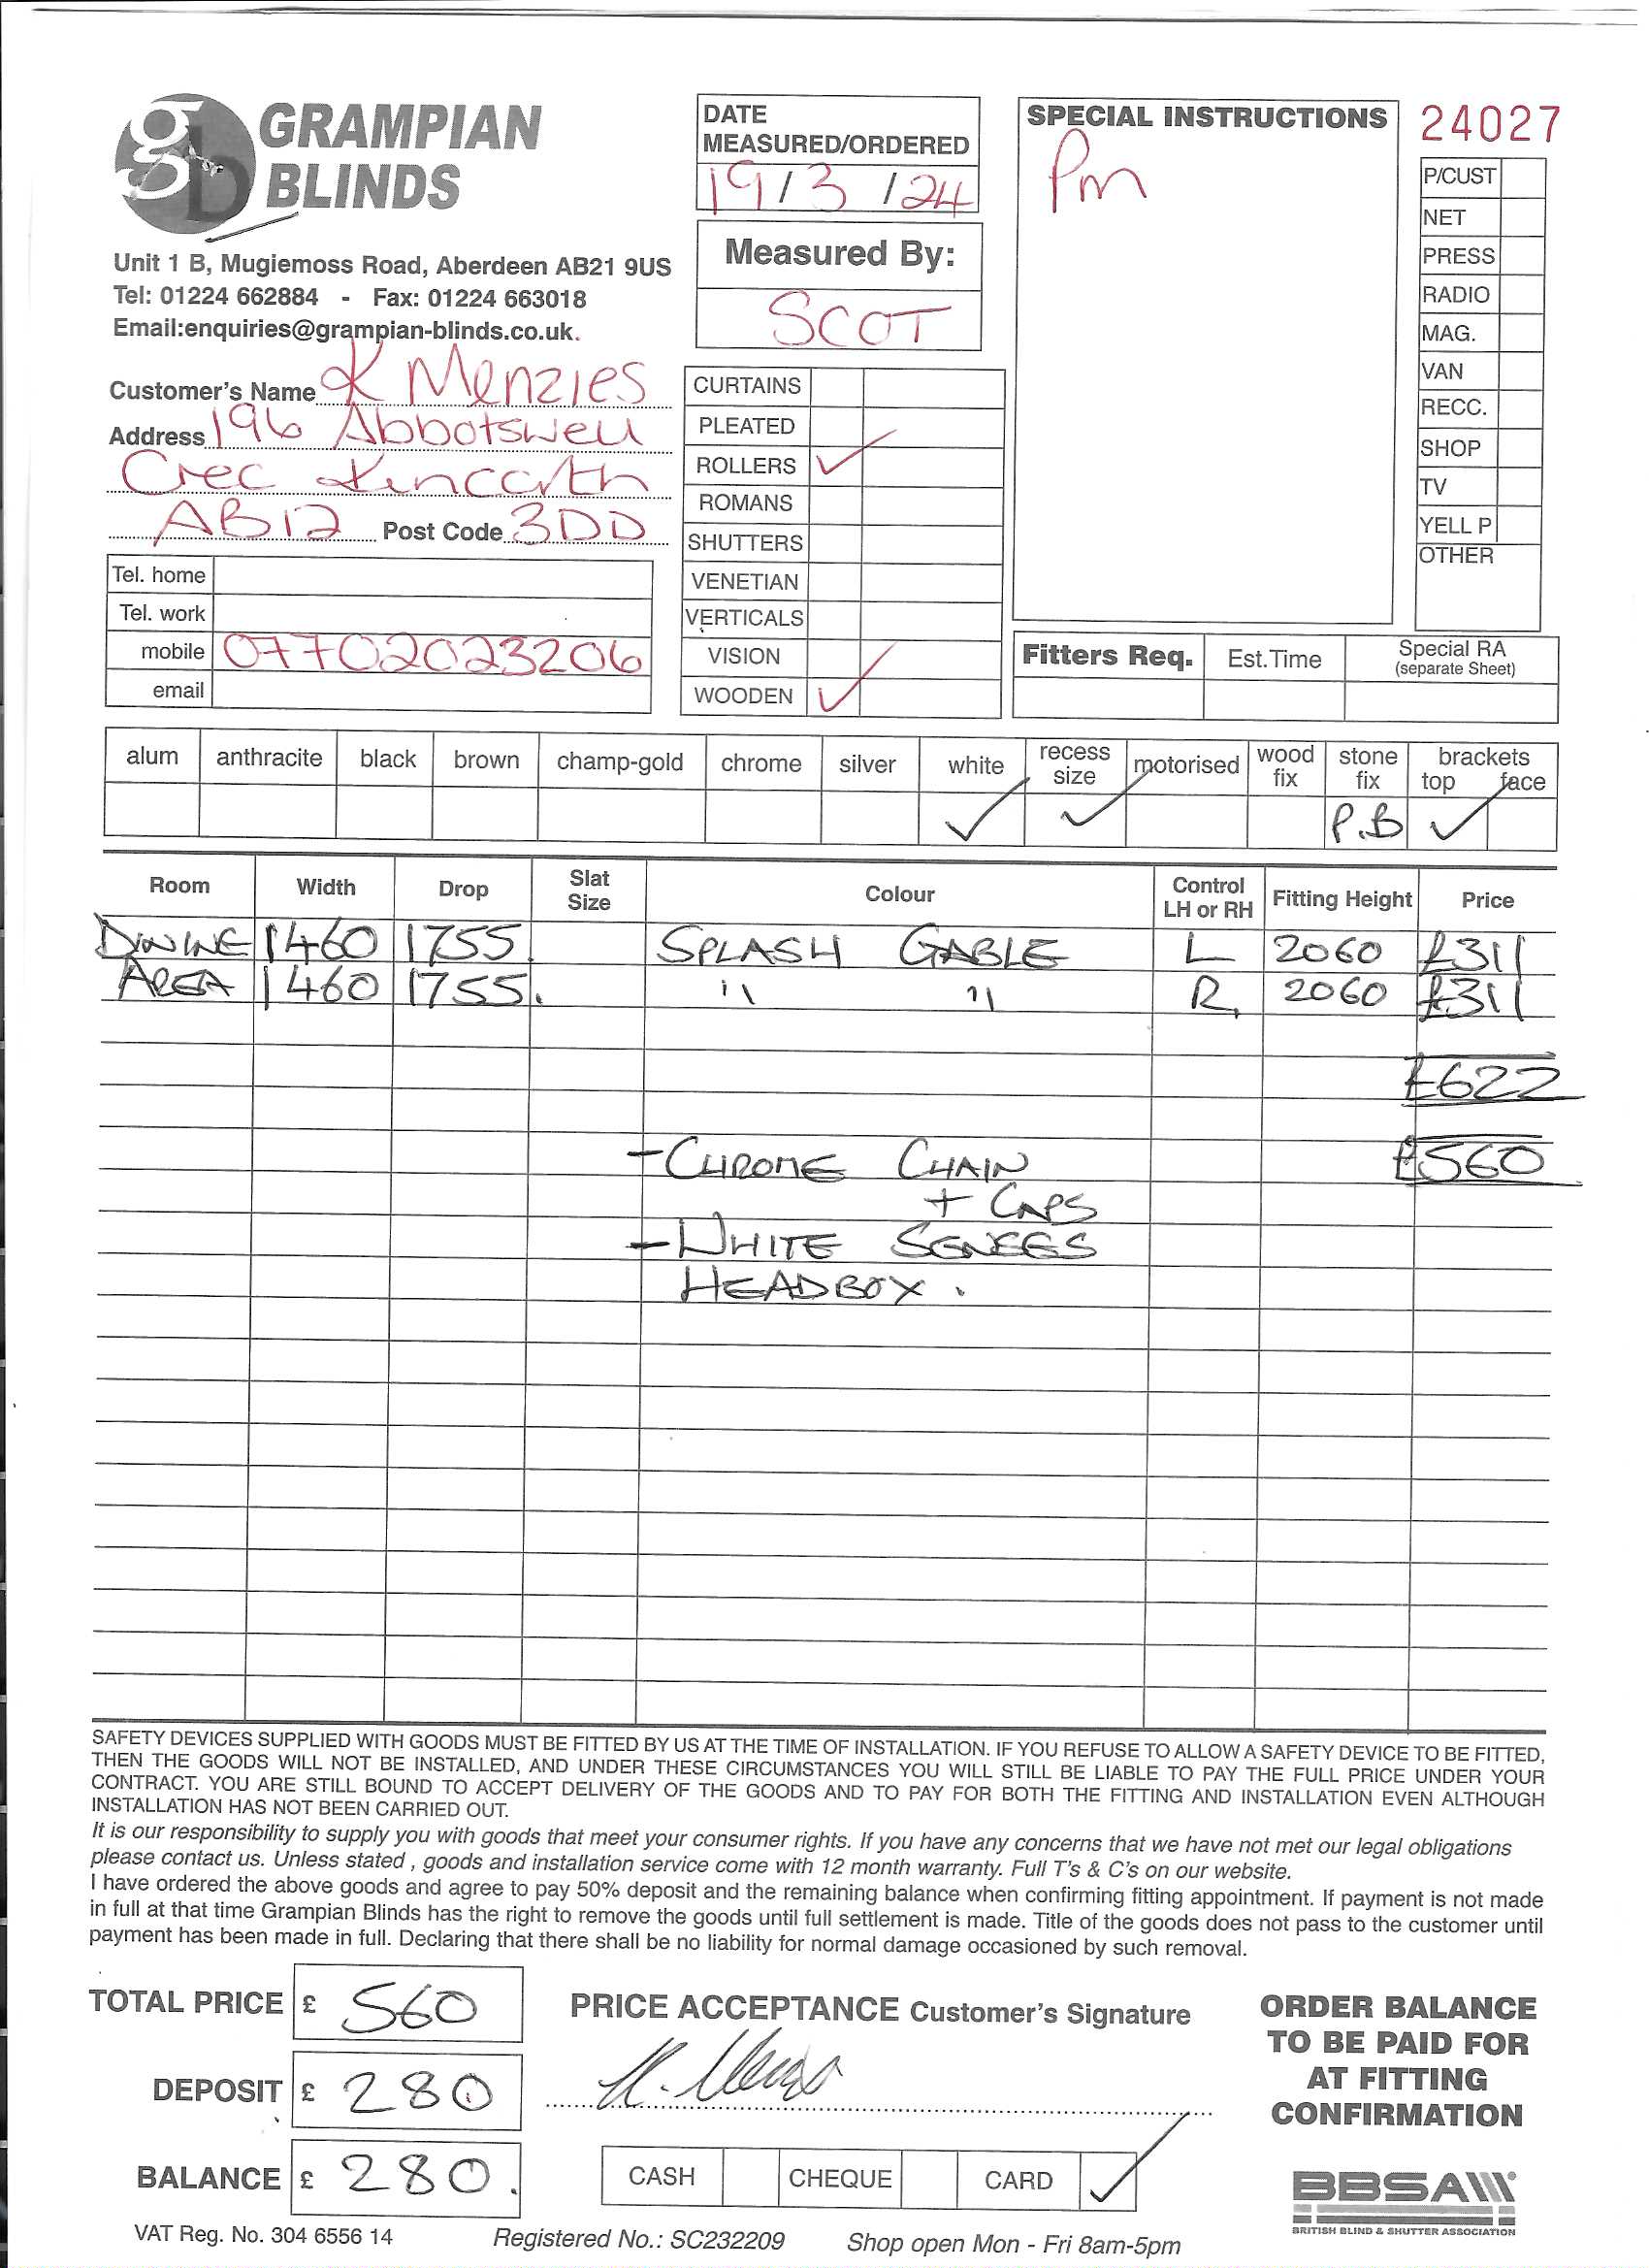 gb GRAMPIAN BLINDS
Unit 1 B, Mugiemoss Road, Aberdeen AB21 9US
Tel: 01224 662884 - Fax: 01224 663018
Email:enquiries@grampian-blinds.co.uk.
DATE
MEASURED/ORDERED
19/3/24
Measured By:
SCOT
SPECIAL INSTRUCTIONS
Pm
24027
P/CUST
NET
PRESS
RADIO
MAG.
VAN
RECC.
SHOP
TV
YELL P
OTHER
Customer's Name K Menzies
Address 196 Abbotswell
Cres Kincorth
AB12 Post Code 3DD
Tel. home
Tel. work
mobile 07702023206
email
CURTAINS
PLEATED
ROLLERS ✓
ROMANS
SHUTTERS
VENETIAN
VERTICALS
VISION
WOODEN ✓
Fitters Req. Est.Time Special RA
(separate Sheet)
alum anthracite black brown champ-gold chrome silver white recess size motorised wood fix stone fix brackets top face
✓ ✓ P.B ✓
Room Width Drop Slat Size Colour Control LH or RH Fitting Height Price
DINING 1460 1755. SPLASH GABLE L 2060 £311
AREA 1460 1755. " " R 2060 £311
£622
- CHROME CHAIN £560
+ CAPS
- WHITE SENSES
HEADBOX.
SAFETY DEVICES SUPPLIED WITH GOODS MUST BE FITTED BY US AT THE TIME OF INSTALLATION. IF YOU REFUSE TO ALLOW A SAFETY DEVICE TO BE FITTED,
THEN THE GOODS WILL NOT BE INSTALLED, AND UNDER THESE CIRCUMSTANCES YOU WILL STILL BE LIABLE TO PAY THE FULL PRICE UNDER YOUR
CONTRACT. YOU ARE STILL BOUND TO ACCEPT DELIVERY OF THE GOODS AND TO PAY FOR BOTH THE FITTING AND INSTALLATION EVEN ALTHOUGH
INSTALLATION HAS NOT BEEN CARRIED OUT.
It is our responsibility to supply you with goods that meet your consumer rights. If you have any concerns that we have not met our legal obligations
please contact us. Unless stated , goods and installation service come with 12 month warranty. Full T's & C's on our website.
I have ordered the above goods and agree to pay 50% deposit and the remaining balance when confirming fitting appointment. If payment is not made
in full at that time Grampian Blinds has the right to remove the goods until full settlement is made. Title of the goods does not pass to the customer until
payment has been made in full. Declaring that there shall be no liability for normal damage occasioned by such removal.
TOTAL PRICE £ 560
DEPOSIT £ 280
BALANCE £ 280.
PRICE ACCEPTANCE Customer's Signature
CASH CHEQUE CARD ✓
ORDER BALANCE
TO BE PAID FOR
AT FITTING
CONFIRMATION
BBSA
BRITISH BLIND & SHUTTER ASSOCIATION
VAT Reg. No. 304 6556 14 Registered No.: SC232209 Shop open Mon - Fri 8am-5pm